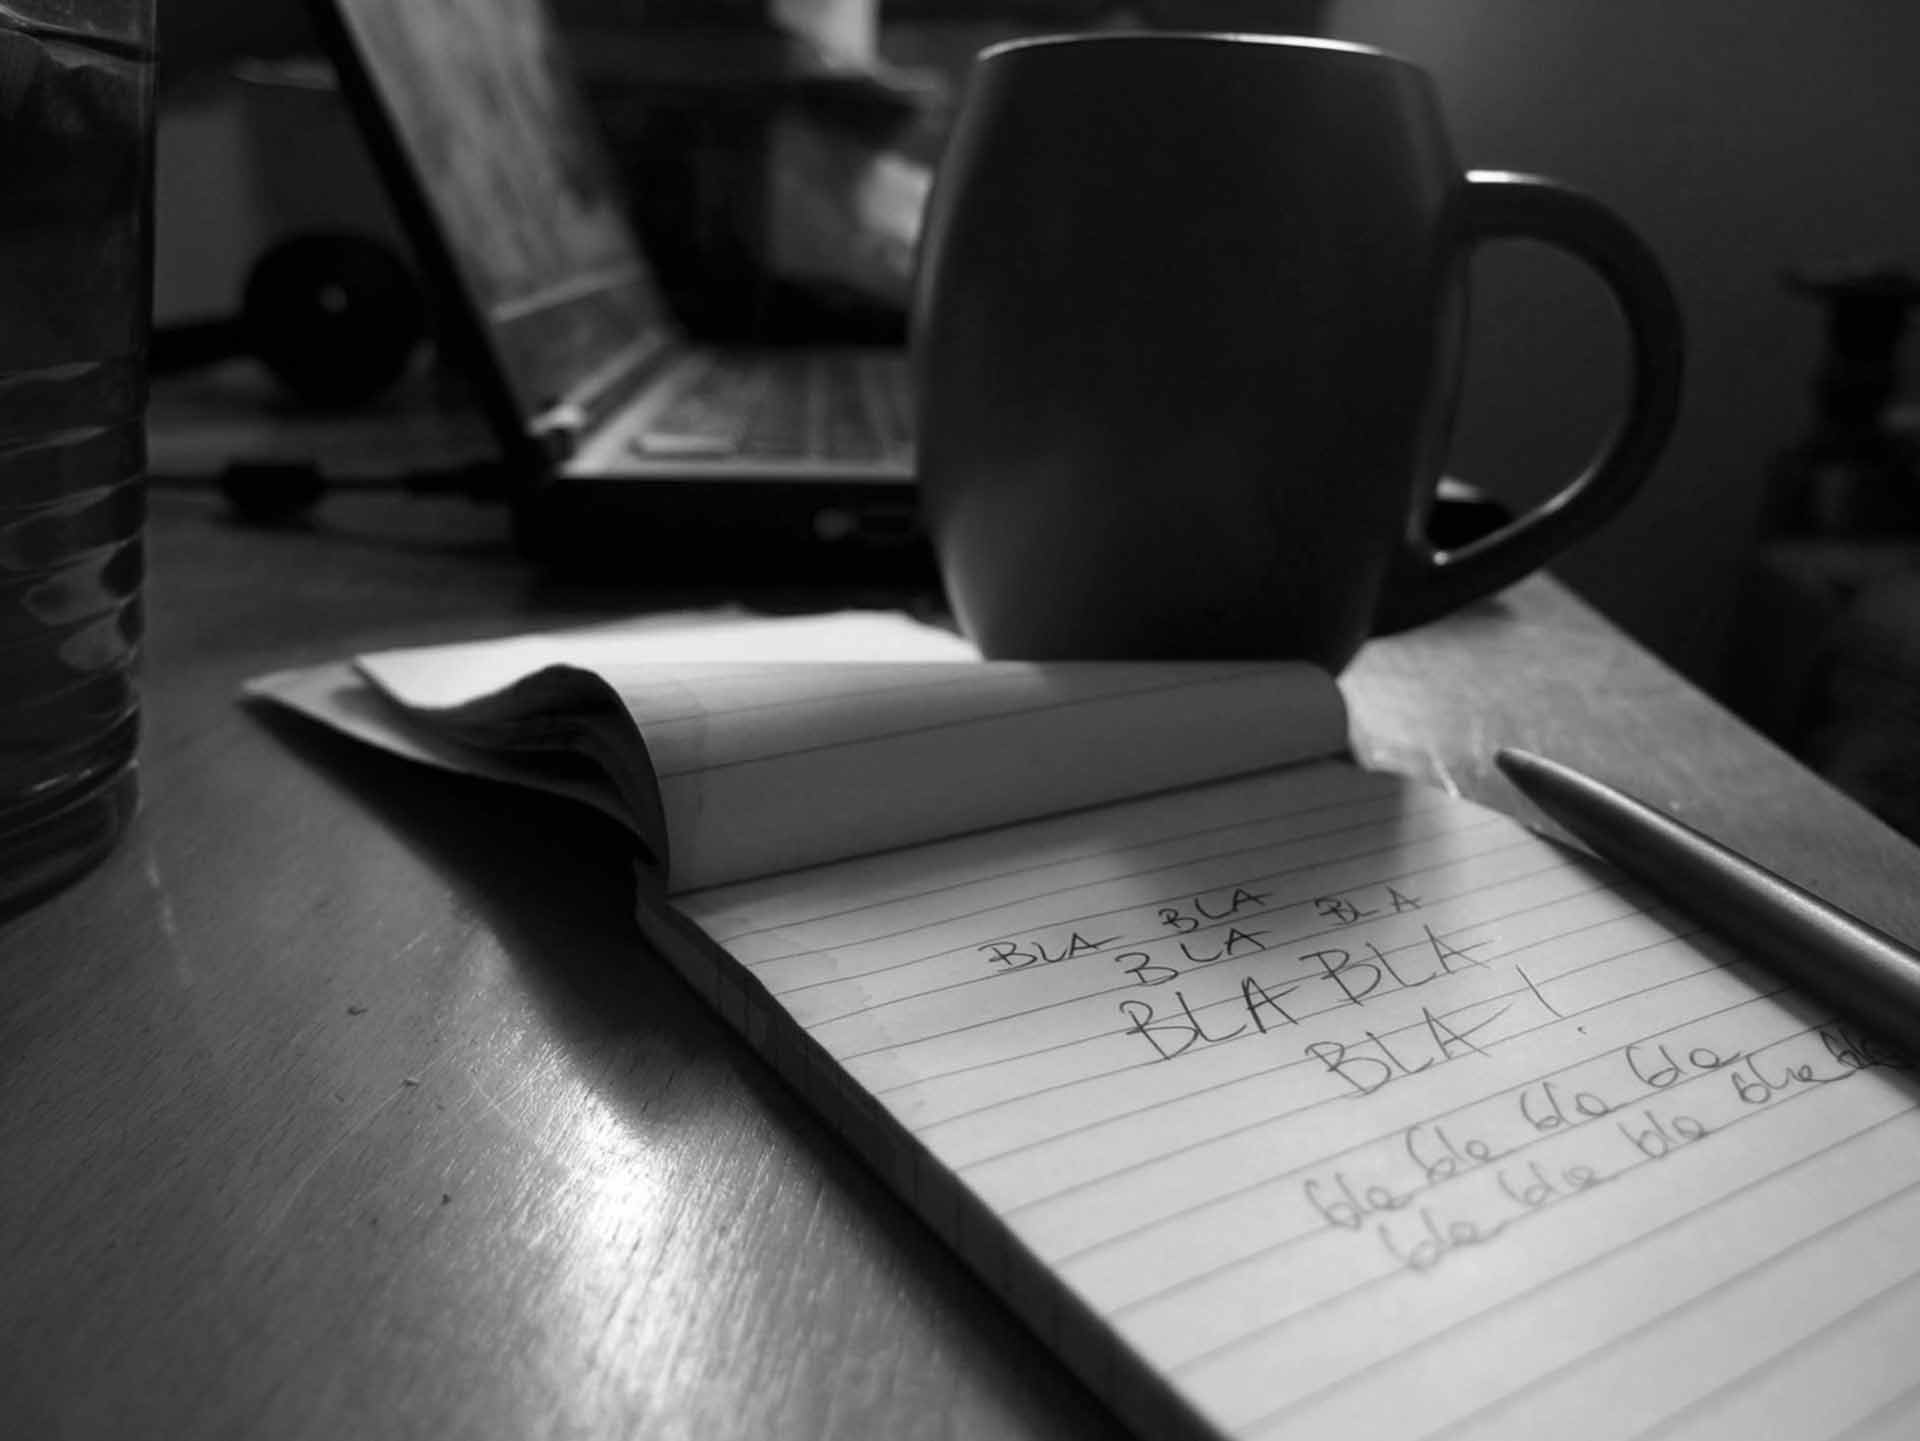 BLA BLA BLA
BLA
BLA BLA
BLA !
bla bla bla bla
bla bla bla bla bla